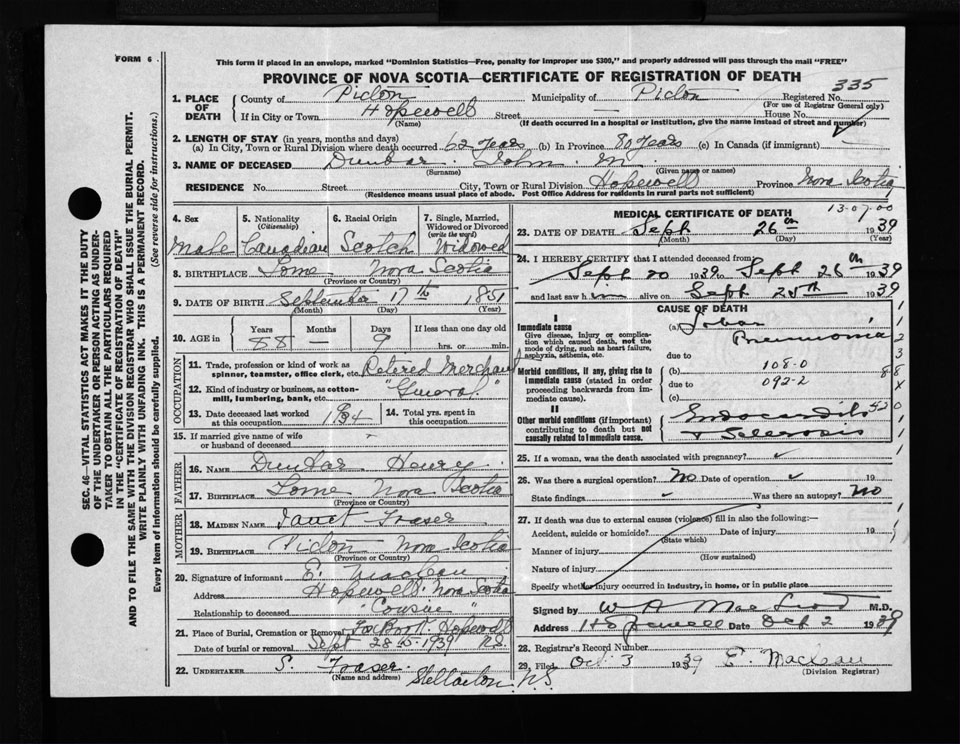 FORM 6
This form if placed in an envelope, marked "Dominion Statistics—Free, penalty for improper use $300," and properly addressed will pass through the mail "FREE"
PROVINCE OF NOVA SCOTIA—CERTIFICATE OF REGISTRATION OF DEATH
335
1. PLACE OF DEATH County of Pictou Municipality of Pictou Registered No.
(For use of Registrar General only)
If in City or Town Hopewell Street — House No.
(Name) (If death occurred in a hospital or institution, give the name instead of street and number)
2. LENGTH OF STAY (in years, months and days)
(a) In City, Town or Rural Division where death occurred 62 years (b) In Province 80 years (c) In Canada (if immigrant)
3. NAME OF DECEASED Dunbar John M.
(Surname) (Given name or names)
RESIDENCE No. Street City, Town or Rural Division Hopewell Province Nova Scotia
(Residence means usual place of abode. Post Office Address for residents in rural parts not sufficient)
4. Sex 5. Nationality (Citizenship) 6. Racial Origin 7. Single, Married, Widowed or Divorced (write the word)
Male Canadian Scotch Widowed
8. BIRTHPLACE Lorne Nova Scotia
(Province or Country)
9. DATE OF BIRTH September 17th 1851
(Month) (Day) (Year)
10. AGE in Years Months Days If less than one day old
88 — 9 hrs. or min.
OCCUPATION
11. Trade, profession or kind of work as spinner, teamster, office clerk, etc. Retered Merchant
12. Kind of industry or business, as cotton-mill, lumbering, bank, etc. "General"
13. Date deceased last worked at this occupation 1934 14. Total yrs. spent in this occupation
15. If married give name of wife or husband of deceased
FATHER
16. NAME Dunbar Henry
17. BIRTHPLACE Lorne Nova Scotia
(Province or Country)
MOTHER
18. MAIDEN NAME Janet Fraser
19. BIRTHPLACE Pictou Nova Scotia
(Province or Country)
20. Signature of informant E. MacLean
Address Hopewell Nova Scotia
Relationship to deceased "Cousin"
21. Place of Burial, Cremation or Removal Hopewell
Date of burial or removal Sept 28th 1939 N.S.
22. UNDERTAKER S. Fraser. Stellarton N.S
(Name and address)
MEDICAL CERTIFICATE OF DEATH 13-07-00
23. DATE OF DEATH Sept 26th 1939
(Month) (Day) (Year)
24. I HEREBY CERTIFY that I attended deceased from:
Sept 20 1939 to Sept 26th 1939
and last saw him alive on Sept 25th 1939
CAUSE OF DEATH
I
Immediate cause
Give disease, injury or complication which caused death, not the mode of dying, such as heart failure, asphyxia, asthenia, etc.
(a) Lobar Pneumonia
due to
Morbid conditions, if any, giving rise to immediate cause (stated in order proceeding backwards from immediate cause).
(b) 108-0
due to 092-0
(c)
II
Other morbid conditions (if important) contributing to death but not causally related to immediate cause.
Endocarditis
+ Sclerosis
25. If a woman, was the death associated with pregnancy?
26. Was there a surgical operation? No Date of operation 19
State findings Was there an autopsy? No
27. If death was due to external causes (violence) fill in also the following:—
Accident, suicide or homicide? Date of injury 19
(State which)
Manner of injury
(How sustained)
Nature of injury
Specify whether injury occurred in industry, in home, or in public place
Signed by W A MacLeod M.D.
Address Hopewell Date Oct 2 1939
28. Registrar's Record Number
29. Filed Oct 3 1939 E. MacLean
(Division Registrar)
SEC. 46—VITAL STATISTICS ACT MAKES IT THE DUTY
OF THE UNDERTAKER OR PERSON ACTING AS UNDER-
TAKER TO OBTAIN ALL THE PARTICULARS REQUIRED
IN THE "CERTIFICATE OF REGISTRATION OF DEATH"
AND TO FILE THE SAME WITH THE DIVISION REGISTRAR WHO SHALL ISSUE THE BURIAL PERMIT.
WRITE PLAINLY WITH UNFADING INK. THIS IS A PERMANENT RECORD.
Every item of Information should be carefully supplied. (See reverse side for instructions.)